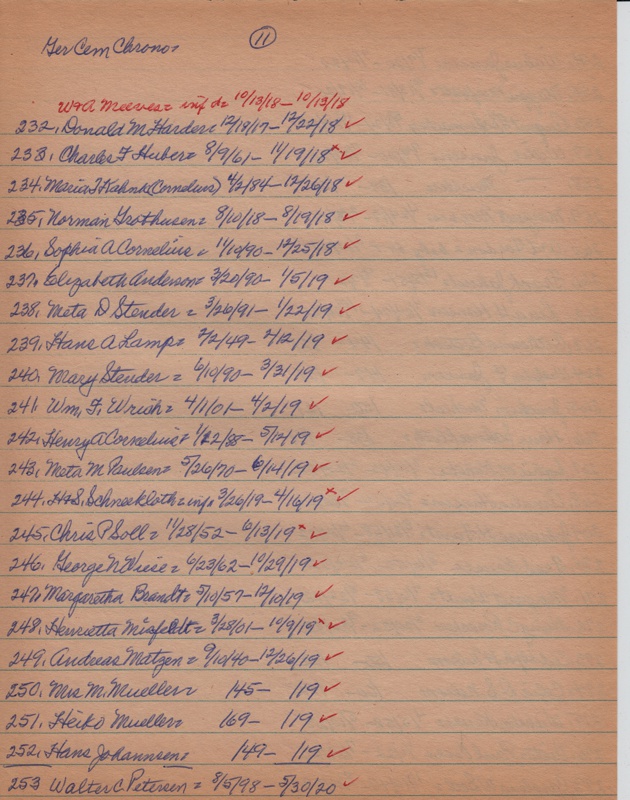 11
Ger Cem Chronos
W+A Meeves = inf d = 10/13/18 – 10/13/18
232, Donald M Harder = 12/18/17 – 12/22/18 ✓
233, Charles F Huber = 8/9/61 – 11/19/18 x ✓
234. Maria F Kahnk (Cornelius) 4/2/84 – 12/26/18 ✓
235, Norman Grothusen = 8/10/18 – 8/19/18 ✓
236, Sophia A Cornelius = 11/19/90 – 12/25/18 ✓
237, Elizabeth Anderson = 3/20/90 – 1/5/19 ✓
238, Meta D Stender = 3/26/91 – 1/22/19 ✓
239, Hans A Lamp = 2/2/49 – 2/12/19 ✓
240, Mary Stender = 6/10/90 – 3/31/19 ✓
241, Wm. F. Wriah = 4/1/01 – 4/2/19 ✓
242, Henry A Cornelius = 1/22/88 – 5/12/19 ✓
243, Meta M Paulsen = 5/26/70 – 6/14/19 ✓
244, H+S. Schneekloth = inf = 3/26/19 – 4/16/19 x ✓
245, Chris P Soll = 11/28/52 – 6/13/19 x ✓
246, George N Wiese = 6/23/62 – 10/29/19 ✓
247, Margaretha Brandt = 5/10/57 – 12/10/19 ✓
248, Henrietta Misfeldt = 3/28/01 – 10/9/19 x ✓
249, Andreas Matzen = 9/10/40 – 12/26/19 ✓
250, Mrs M. Mueller = /45 – /19 ✓
251, Heiko Mueller = /69 – /19 ✓
252, Hans Johannsen = /49 – /19 ✓
253 Walter C Petersen = 8/5/98 – 5/30/20 ✓